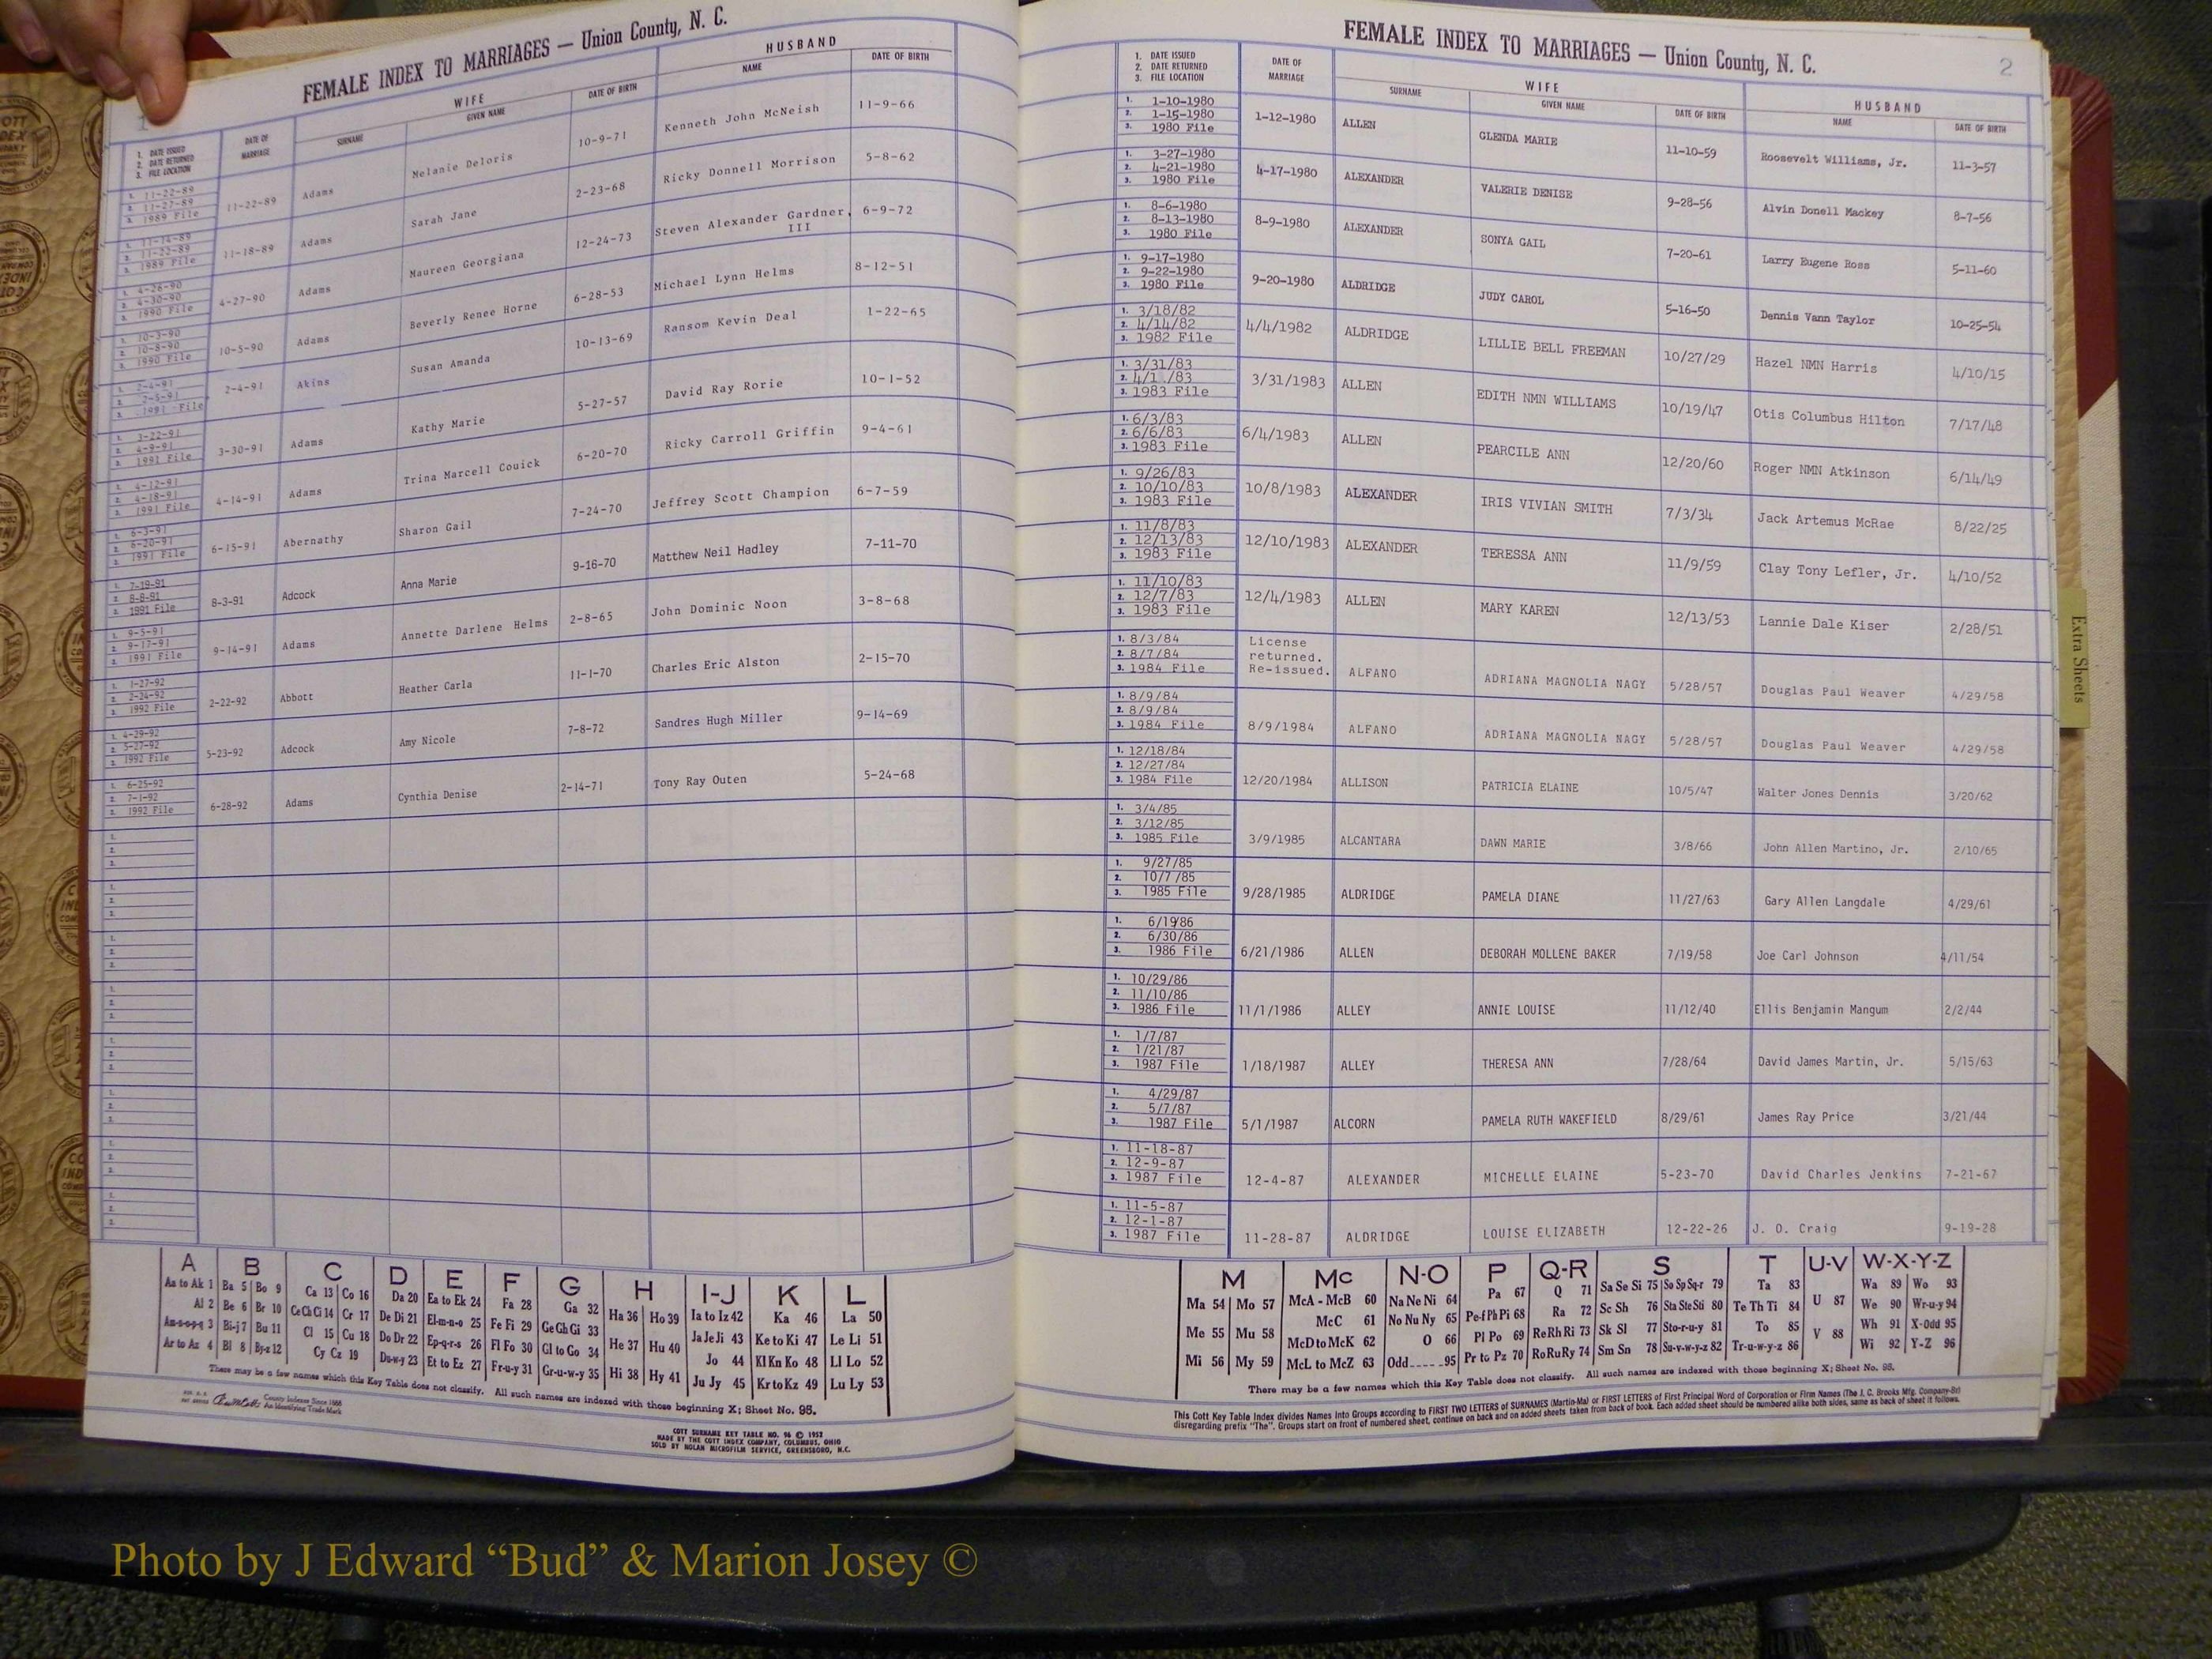 FEMALE INDEX TO MARRIAGES — Union County, N. C.
1
1. DATE ISSUED
2. DATE RETURNED
3. FILE LOCATION
DATE OF MARRIAGE
WIFE
SURNAME
GIVEN NAME
DATE OF BIRTH
HUSBAND
NAME
DATE OF BIRTH
1. 11-22-89
2. 11-27-89
3. 1989 File
11-22-89 Adams Melanie Deloris 10-9-71 Kenneth John McNeish 11-9-66
1. 11-14-89
2. 11-22-89
3. 1989 File
11-18-89 Adams Sarah Jane 2-23-68 Ricky Donnell Morrison 5-8-62
1. 4-26-90
2. 4-30-90
3. 1990 File
4-27-90 Adams Maureen Georgiana 12-24-73 Steven Alexander Gardner, III 6-9-72
1. 10-3-90
2. 10-8-90
3. 1990 File
10-5-90 Adams Beverly Renee Horne 6-28-53 Michael Lynn Helms 8-12-51
1. 2-4-91
2. 2-5-91
3. 1991 File
2-4-91 Akins Susan Amanda 10-13-69 Ransom Kevin Deal 1-22-65
1. 3-22-91
2. 4-9-91
3. 1991 File
3-30-91 Adams Kathy Marie 5-27-57 David Ray Rorie 10-1-52
1. 4-12-91
2. 4-18-91
3. 1991 File
4-14-91 Adams Trina Marcell Couick 6-20-70 Ricky Carroll Griffin 9-4-61
1. 6-3-91
2. 6-20-91
3. 1991 File
6-15-91 Abernathy Sharon Gail 7-24-70 Jeffrey Scott Champion 6-7-59
1. 7-19-91
2. 8-8-91
3. 1991 File
8-3-91 Adcock Anna Marie 9-16-70 Matthew Neil Hadley 7-11-70
1. 9-5-91
2. 9-17-91
3. 1991 File
9-14-91 Adams Annette Darlene Helms 2-8-65 John Dominic Noon 3-8-68
1. 1-27-92
2. 2-24-92
3. 1992 File
2-22-92 Abbott Heather Carla 11-1-70 Charles Eric Alston 2-15-70
1. 4-29-92
2. 5-27-92
3. 1992 File
5-23-92 Adcock Amy Nicole 7-8-72 Sandres Hugh Miller 9-14-69
1. 6-25-92
2. 7-1-92
3. 1992 File
6-28-92 Adams Cynthia Denise 2-14-71 Tony Ray Outen 5-24-68
1.
2.
3.
1.
2.
3.
1.
2.
3.
1.
2.
3.
1.
2.
3.
1.
2.
3.
1.
2.
3.
1.
2.
3.
A B C D E F G H I-J K L
Aa to Ak 1 Ba 5 Bo 9 Ca 13 Co 16 Da 20 Ea to Ek 24 Fa 28 Ga 32 Ha 36 Ho 39 Ia to Iz 42 Ka 46 La 50
Al 2 Be 6 Br 10 Ce Ch Ci 14 Cr 17 De Di 21 El-m-n-o 25 Fe Fi 29 Ge Gh Gi 33 He 37 Hu 40 Ja Je Ji 43 Ke to Ki 47 Le Li 51
Am-n-o-p-q 3 Bi-j 7 Bu 11 Cl 15 Cu 18 Do Dr 22 Ep-q-r-s 26 Fl Fo 30 Gl to Go 34 Hi 38 Hy 41 Jo 44 Kl Kn Ko 48 Ll Lo 52
Ar to Az 4 Bl 8 By-z 12 Cy Cz 19 Du-w-y 23 Et to Ez 27 Fr-u-y 31 Gr-u-w-y 35 Ju Jy 45 Kr to Kz 49 Lu Ly 53
There may be a few names which this Key Table does not classify. All such names are indexed with those beginning X; Sheet No. 95.
County Indexes Since 1888
An Identifying Trade Mark
COTT SURNAME KEY TABLE NO. 96 © 1952
MADE BY THE COTT INDEX COMPANY, COLUMBUS, OHIO
SOLD BY NOLAN MICROFILM SERVICE, GREENSBORO, N.C.
FEMALE INDEX TO MARRIAGES — Union County, N. C.
2
1. DATE ISSUED
2. DATE RETURNED
3. FILE LOCATION
DATE OF MARRIAGE
WIFE
SURNAME
GIVEN NAME
DATE OF BIRTH
HUSBAND
NAME
DATE OF BIRTH
1. 1-10-1980
2. 1-15-1980
3. 1980 File
1-12-1980 ALLEN GLENDA MARIE 11-10-59 Roosevelt Williams, Jr. 11-3-57
1. 3-27-1980
2. 4-21-1980
3. 1980 File
4-17-1980 ALEXANDER VALERIE DENISE 9-28-56 Alvin Donell Mackey 8-7-56
1. 8-6-1980
2. 8-13-1980
3. 1980 File
8-9-1980 ALEXANDER SONYA GAIL 7-20-61 Larry Eugene Ross 5-11-60
1. 9-17-1980
2. 9-22-1980
3. 1980 File
9-20-1980 ALDRIDGE JUDY CAROL 5-16-50 Dennis Vann Taylor 10-25-54
1. 3/18/82
2. 4/14/82
3. 1982 File
4/4/1982 ALDRIDGE LILLIE BELL FREEMAN 10/27/29 Hazel NMN Harris 4/10/15
1. 3/31/83
2. 4/1 /83
3. 1983 File
3/31/1983 ALLEN EDITH NMN WILLIAMS 10/19/47 Otis Columbus Hilton 7/17/48
1. 6/3/83
2. 6/6/83
3. 1983 File
6/4/1983 ALLEN PEARCILE ANN 12/20/60 Roger NMN Atkinson 6/14/49
1. 9/26/83
2. 10/10/83
3. 1983 File
10/8/1983 ALEXANDER IRIS VIVIAN SMITH 7/3/34 Jack Artemus McRae 8/22/25
1. 11/8/83
2. 12/13/83
3. 1983 File
12/10/1983 ALEXANDER TERESSA ANN 11/9/59 Clay Tony Lefler, Jr. 4/10/52
1. 11/10/83
2. 12/7/83
3. 1983 File
12/4/1983 ALLEN MARY KAREN 12/13/53 Lannie Dale Kiser 2/28/51
1. 8/3/84
2. 8/7/84
3. 1984 File
License returned. Re-issued. ALFANO ADRIANA MAGNOLIA NAGY 5/28/57 Douglas Paul Weaver 4/29/58
1. 8/9/84
2. 8/9/84
3. 1984 File
8/9/1984 ALFANO ADRIANA MAGNOLIA NAGY 5/28/57 Douglas Paul Weaver 4/29/58
1. 12/18/84
2. 12/27/84
3. 1984 File
12/20/1984 ALLISON PATRICIA ELAINE 10/5/47 Walter Jones Dennis 3/20/62
1. 3/4/85
2. 3/12/85
3. 1985 File
3/9/1985 ALCANTARA DAWN MARIE 3/8/66 John Allen Martino, Jr. 2/10/65
1. 9/27/85
2. 10/7/85
3. 1985 File
9/28/1985 ALDRIDGE PAMELA DIANE 11/27/63 Gary Allen Langdale 4/29/61
1. 6/19/86
2. 6/30/86
3. 1986 File
6/21/1986 ALLEN DEBORAH MOLLENE BAKER 7/19/58 Joe Carl Johnson 4/11/54
1. 10/29/86
2. 11/10/86
3. 1986 File
11/1/1986 ALLEY ANNIE LOUISE 11/12/40 Ellis Benjamin Mangum 2/2/44
1. 1/7/87
2. 1/21/87
3. 1987 File
1/18/1987 ALLEY THERESA ANN 7/28/64 David James Martin, Jr. 5/15/63
1. 4/29/87
2. 5/7/87
3. 1987 File
5/1/1987 ALCORN PAMELA RUTH WAKEFIELD 8/29/61 James Ray Price 3/21/44
1. 11-18-87
2. 12-9-87
3. 1987 File
12-4-87 ALEXANDER MICHELLE ELAINE 5-23-70 David Charles Jenkins 7-21-67
1. 11-5-87
2. 12-1-87
3. 1987 File
11-28-87 ALDRIDGE LOUISE ELIZABETH 12-22-26 J. O. Craig 9-19-28
M Mc N-O P Q-R S T U-V W-X-Y-Z
Ma 54 Mo 57 McA - McB 60 Na Ne Ni 64 Pa 67 Q 71 Sa Se Si 75 So Sp Sq-r 79 Ta 83 U 87 Wa 89 Wo 93
Me 55 Mu 58 McC 61 No Nu Ny 65 Pe-f Ph Pi 68 Ra 72 Sc Sh 76 Sta Ste Sti 80 Te Th Ti 84 V 88 We 90 Wr-u-y 94
Mi 56 My 59 McD to McK 62 O 66 Pl Po 69 Re Rh Ri 73 Sk Sl 77 Sto-r-u-y 81 To 85 Wh 91 X-Odd 95
McL to McZ 63 Odd-----95 Pr to Pz 70 Ro Ru Ry 74 Sm Sn 78 Su-v-w-y-z 82 Tr-u-w-y-z 86 Wi 92 Y-Z 96
There may be a few names which this Key Table does not classify. All such names are indexed with those beginning X; Sheet No. 95.
This Cott Key Table Index divides Names into Groups according to FIRST TWO LETTERS of SURNAMES (Martin-Ma) or FIRST LETTERS of First Principal Word of Corporation or Firm Names (The J. C. Brooks Mfg. Company-Br)
disregarding prefix "The". Groups start on front of numbered sheet, continue on back and on added sheets taken from back of book. Each added sheet should be numbered alike both sides, same as back of sheet it follows.
Extra Sheets
Photo by J Edward “Bud” & Marion Josey ©